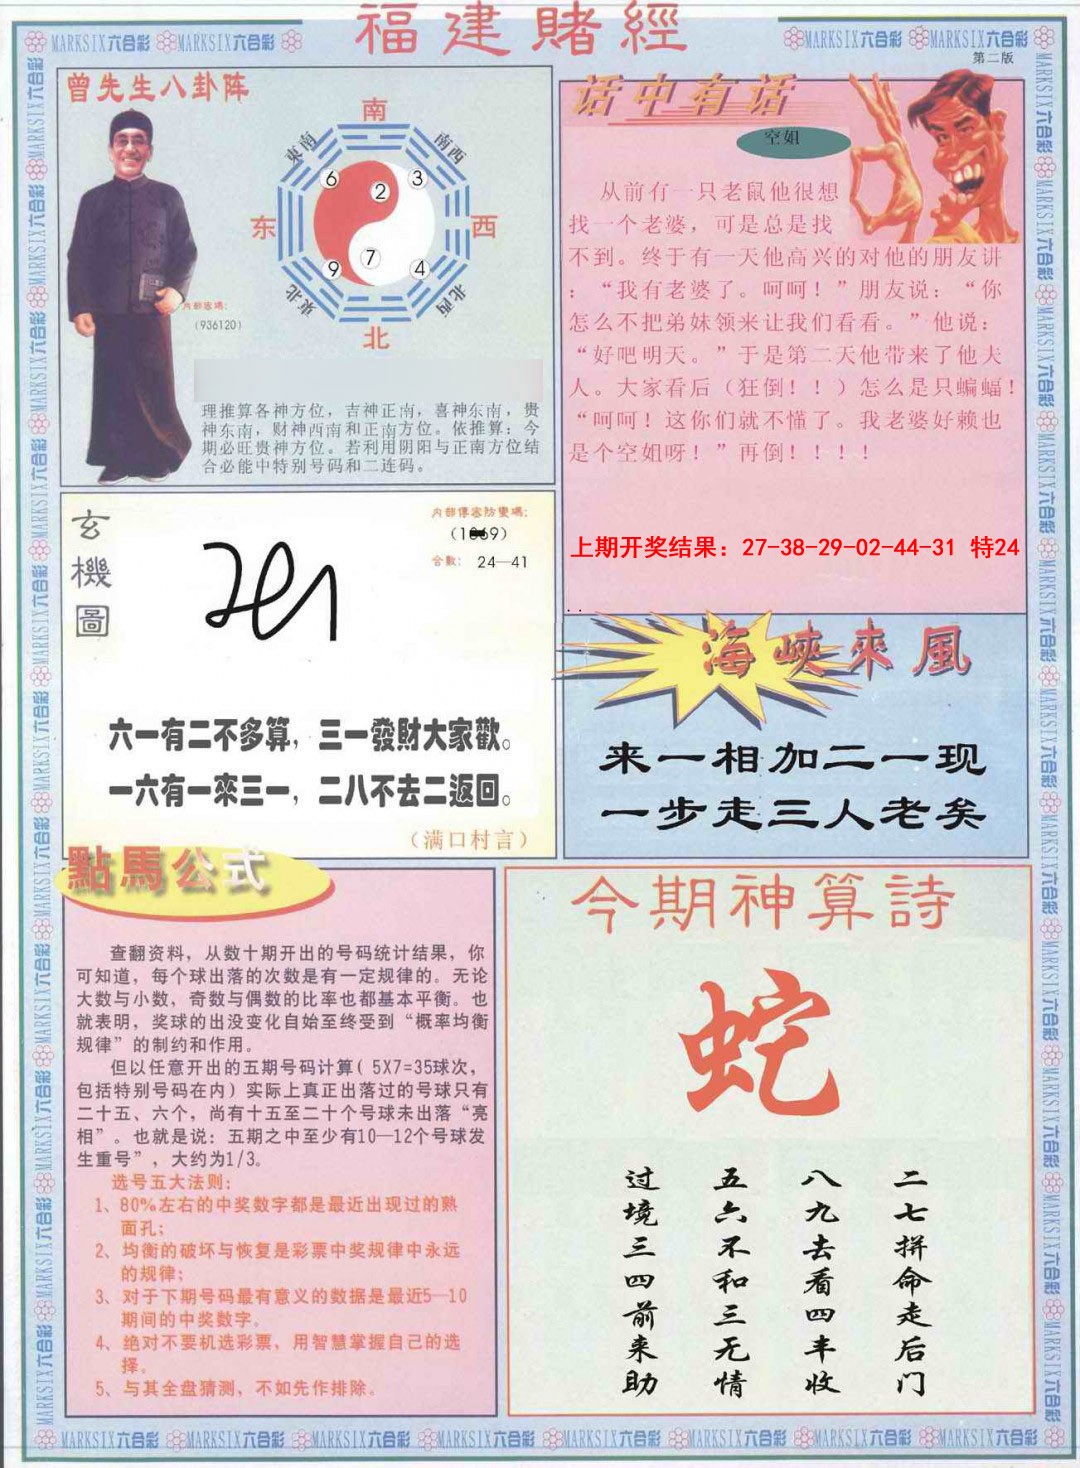 福建賭經
MARKSIX六合彩 MARKSIX六合彩 MARKSIX六合彩 MARKSIX六合彩
第二版
曾先生八卦阵
南
東南
南西
6
2
3
东
西
9
7
4
東北
北西
北
内部密碼:
(936120)
理推算各神方位，吉神正南，喜神东南，贵
神东南，财神西南和正南方位。依推算：今
期必旺贵神方位。若利用阴阳与正南方位结
合必能中特别号码和二连码。
话中有话
空姐
从前有一只老鼠他很想
找一个老婆，可是总是找
不到。终于有一天他高兴的对他的朋友讲
：“我有老婆了。呵呵！”朋友说：“你
怎么不把弟妹领来让我们看看。”他说：
“好吧明天。”于是第二天他带来了他夫
人。大家看后（狂倒！！）怎么是只蝙蝠！
“呵呵！这你们就不懂了。我老婆好赖也
是个空姐呀！”再倒！！！！
上期开奖结果：27-38-29-02-44-31 特24
玄機圖
内部傳密防變碼:
合數: 24—41
六一有二不多算，三一發財大家歡。
一六有一來三一，二八不去二返回。
（满口村言）
海峽來風
来一相加二一现
一步走三人老矣
點馬公式
查翻资料，从数十期开出的号码统计结果，你
可知道，每个球出落的次数是有一定规律的。无论
大数与小数，奇数与偶数的比率也都基本平衡。也
就表明，奖球的出没变化自始至终受到“概率均衡
规律”的制约和作用。
但以任意开出的五期号码计算( 5X7=35球次，
包括特别号码在内）实际上真正出落过的号球只有
二十五、六个，尚有十五至二十个号球未出落“亮
相”。也就是说：五期之中至少有10—12个号球发
生重号”，大约为1/3。
选号五大法则：
1、80%左右的中奖数字都是最近出现过的熟
面孔；
2、均衡的破坏与恢复是彩票中奖规律中永远
的规律；
3、对于下期号码最有意义的数据是最近5—10
期间的中奖数字。
4、绝对不要机选彩票，用智慧掌握自己的选
择。
5、与其全盘猜测，不如先作排除。
今期神算詩
蛇
二七拼命走后门
八九去看四丰收
五六不和三无情
过境三四前来助
MARKSIX六合彩 MARKSIX六合彩 MARKSIX六合彩 MARKSIX六合彩 MARKSIX六合彩 MARKSIX六合彩 MARKSIX六合彩 MARKSIX六合彩